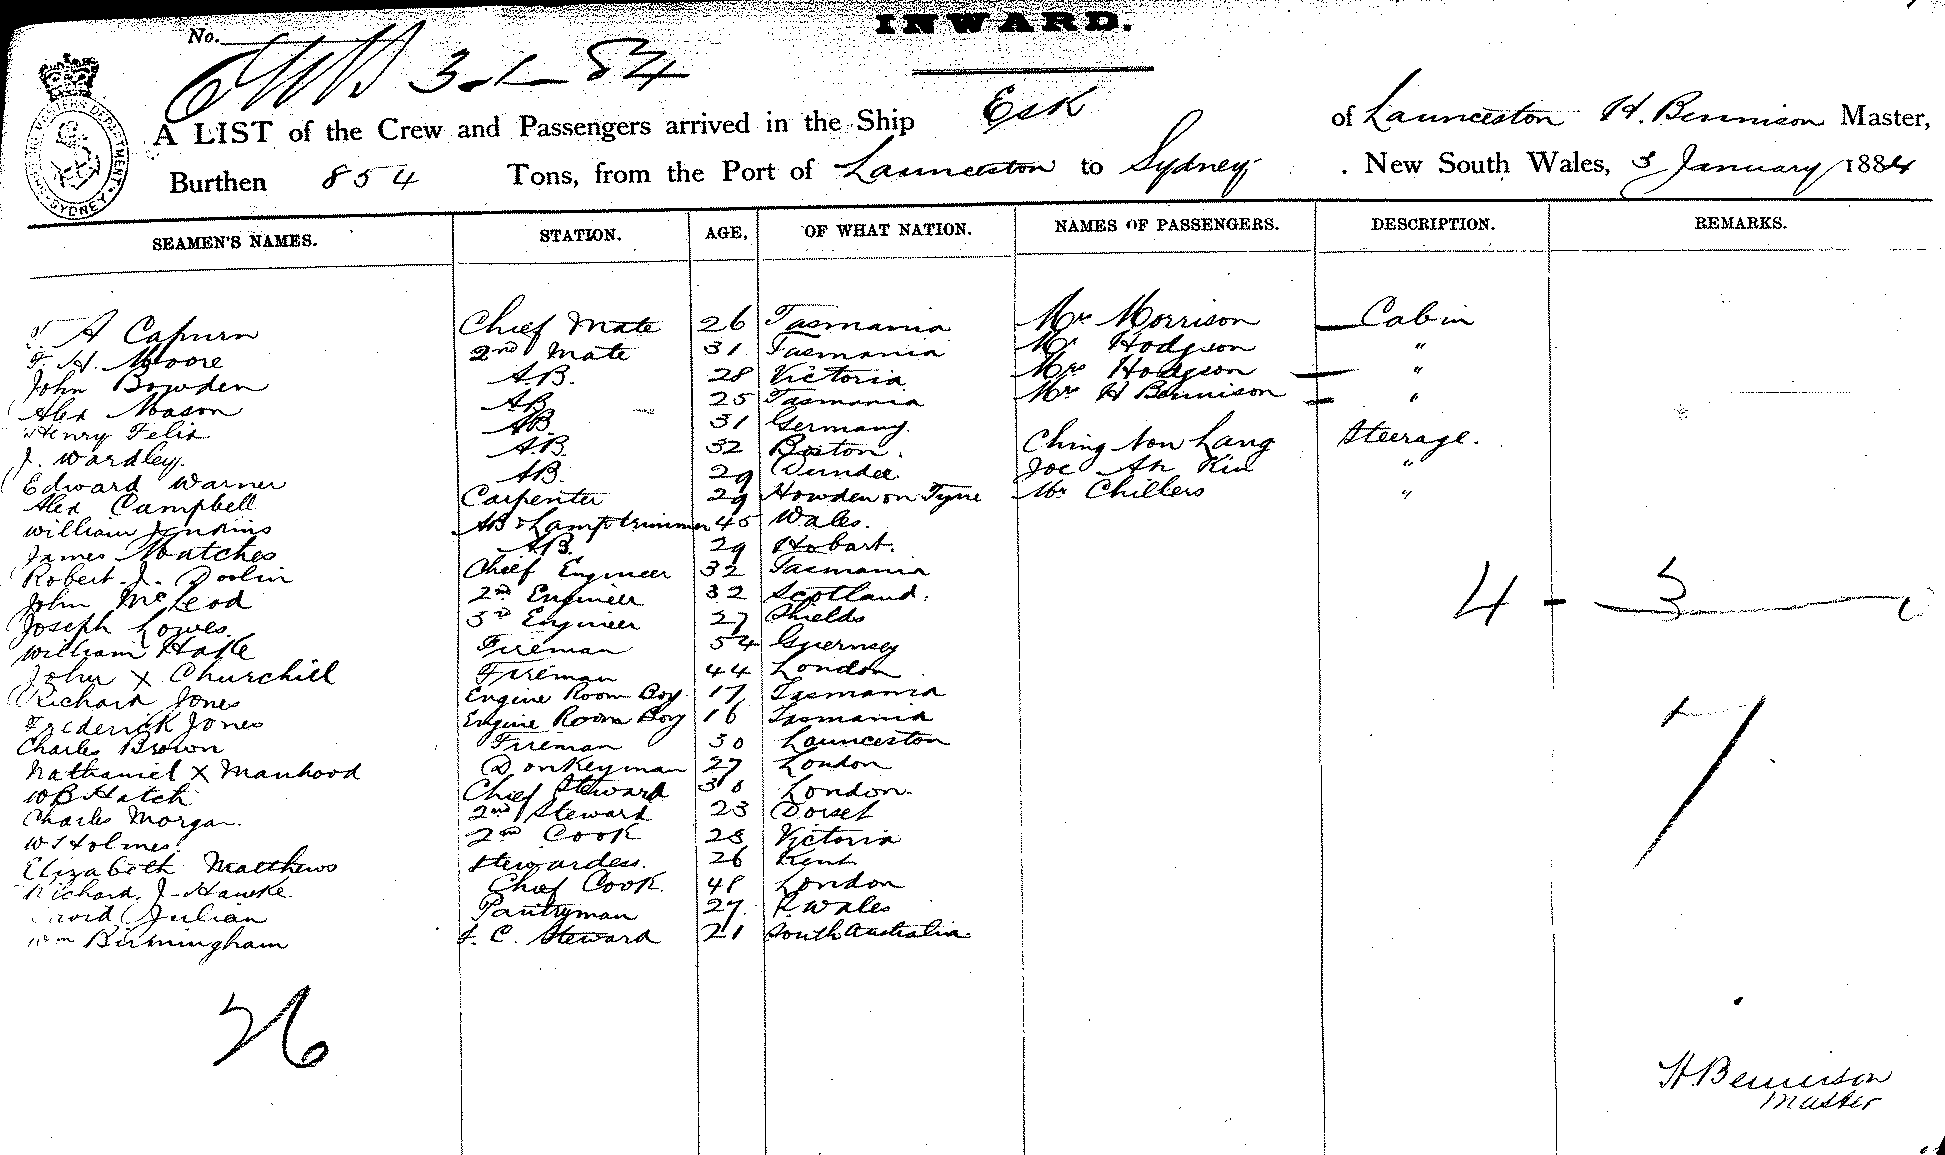 INWARD.
No.
3-1-84
A LIST of the Crew and Passengers arrived in the Ship Esk of Launceston H. Bennison Master,
Burthen 854 Tons, from the Port of Launceston to Sydney. New South Wales, 3 January 1884
SEAMEN'S NAMES. STATION. AGE, OF WHAT NATION. NAMES OF PASSENGERS. DESCRIPTION. REMARKS.
A Capurn Chief Mate 26 Tasmania Mr Morrison Cabin
F. H. Moore 2nd Mate 31 Tasmania Mr Hodgson "
John Bowden AB. 28 Victoria Mrs Hodgson "
Alex Mason AB 25 Tasmania Mrs H Bennison "
Henry Felix AB. 31 Germany.
J. Wardley. A.B. 32 Boston. Ching Lang Steerage.
Edward Warner AB. 29 Dundee Joe Ah Kin "
Alex Campbell Carpenter 29 Howden on Tyne Mr Chillers "
William Jenkins AB & Lamptrimmer 45 Wales.
James Matches AB. 29 Hobart.
Robert J. Doolin Chief Engineer 32 Tasmania
John McLeod 2nd Engineer 32 Scotland.
Joseph Lowes. 3rd Engineer 27 Shields
William Hake Fireman 54 Guernsey
John X Churchill Fireman 44 London
Richard Jones Engine Room Boy 17 Tasmania
Frederick Jones Engine Room Boy 16 Tasmania
Charles Brown Fireman 30 Launceston
Nathaniel X Manhood Donkeyman 27 London
WB Hatch Chief Steward 30 London.
Charles Morgan. 2nd Steward 23 Dorset
W Holmes 2nd Cook 28 Victoria
Elizabeth Matthews Stewardess. 26 Kent
Richard J. Hawke Chief Cook. 48 London
David Julian Pantryman 27. Wales
Wm Birmingham F. C. Steward 21 South Australia.
4 - 3
7
26
H. Bennison
Master